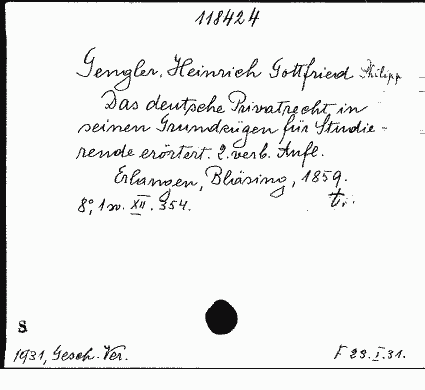 118424
Gengler, Heinrich Gottfried Philipp
Das deutsche Privatrecht in
seinen Grundzügen für Studie-
rende erörtert. 2. verb. Aufl.
Erlangen, Bläsing, 1859.
8°, 1 w. XII. 354. t.
S
1931, Gesch. Ver. F 23. I. 31.